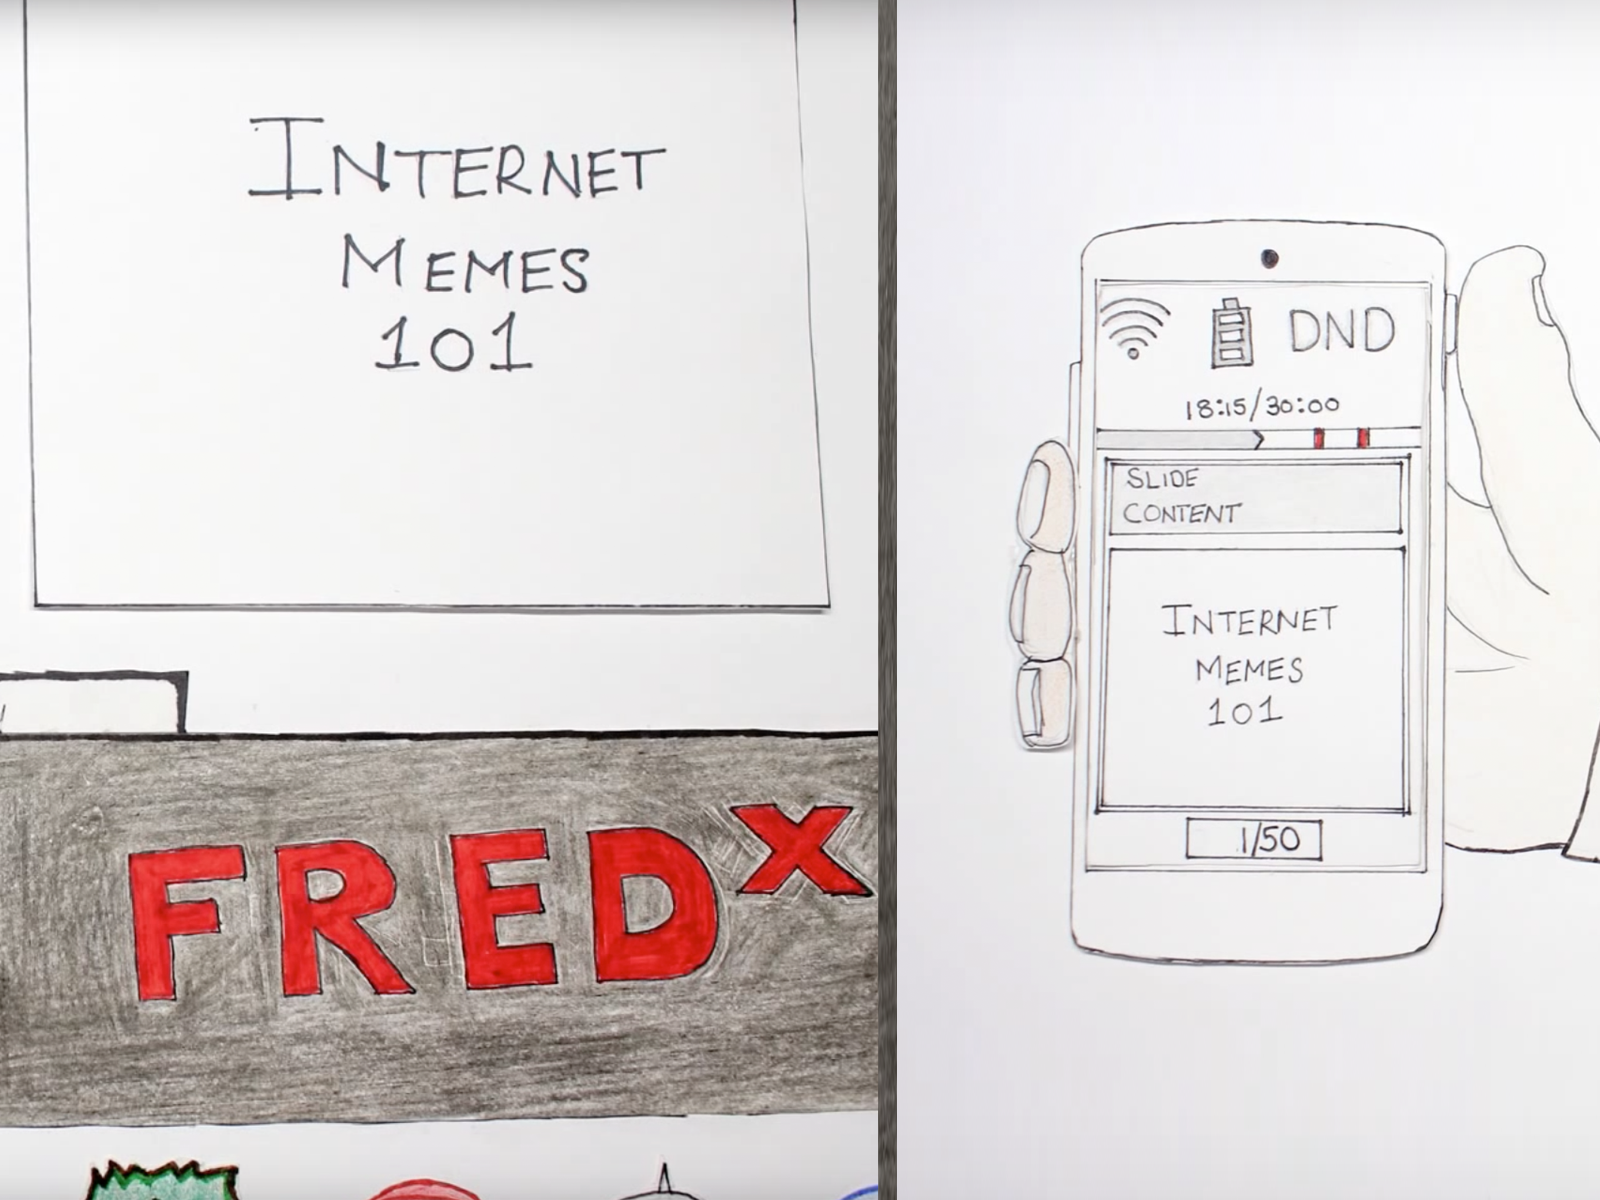 INTERNET
MEMES
101
FREDX
DND
18:15/30:00
SLIDE
CONTENT
INTERNET
MEMES
101
1/50